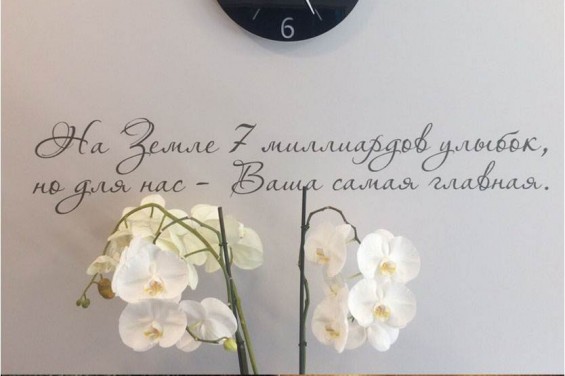 6
На Земле 7 миллиардов улыбок,
но для нас - Ваша самая главная.